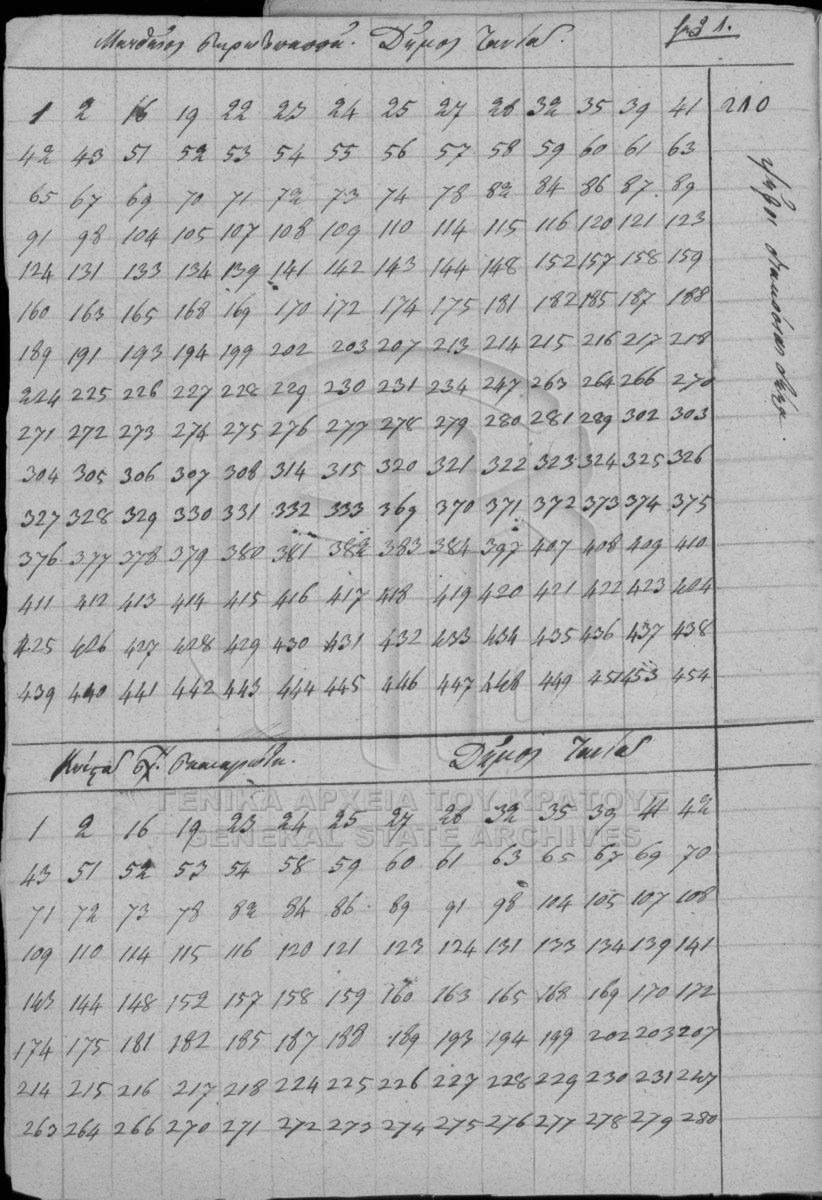 Δήμος
1 2 16 19 22 23 24 25 27 28 32 35 39 41 210
42 43 51 52 53 54 55 56 57 58 59 60 61 63
65 67 69 70 71 72 73 74 78 82 84 86 87 89
91 98 104 105 107 108 109 110 114 115 116 120 121 123
124 131 133 134 139 141 142 143 144 148 152 157 158 159
160 163 165 168 169 170 172 174 175 181 182 185 187 188
189 191 193 194 199 202 203 207 213 214 215 216 217 218
224 225 226 227 228 229 230 231 234 247 263 264 266 270
271 272 273 274 275 276 277 278 279 280 281 289 302 303
304 305 306 307 308 314 315 320 321 322 323 324 325 326
327 328 329 330 331 332 333 369 370 371 372 373 374 375
376 377 378 379 380 381 382 383 384 397 407 408 409 410
411 412 413 414 415 416 417 418 419 420 421 422 423 424
425 426 427 428 429 430 431 432 433 434 435 436 437 438
439 440 441 442 443 444 445 446 447 448 449 451 453 454
ψήφοι διακόσιαι δέκα.
Δήμος
ΓΕΝΙΚΑ ΑΡΧΕΙΑ ΤΟΥ ΚΡΑΤΟΥΣ
GENERAL STATE ARCHIVES
1 2 16 19 23 24 25 27 28 32 35 39 41 42
43 51 52 53 54 58 59 60 61 63 65 67 69 70
71 72 73 78 82 84 86 89 91 98 104 105 107 108
109 110 114 115 116 120 121 123 124 131 133 134 139 141
143 144 148 152 157 158 159 160 163 165 168 169 170 172
174 175 181 182 185 187 188 189 193 194 199 202 203 207
214 215 216 217 218 224 225 226 227 228 229 230 231 247
263 264 266 270 271 272 273 274 275 276 277 278 279 280